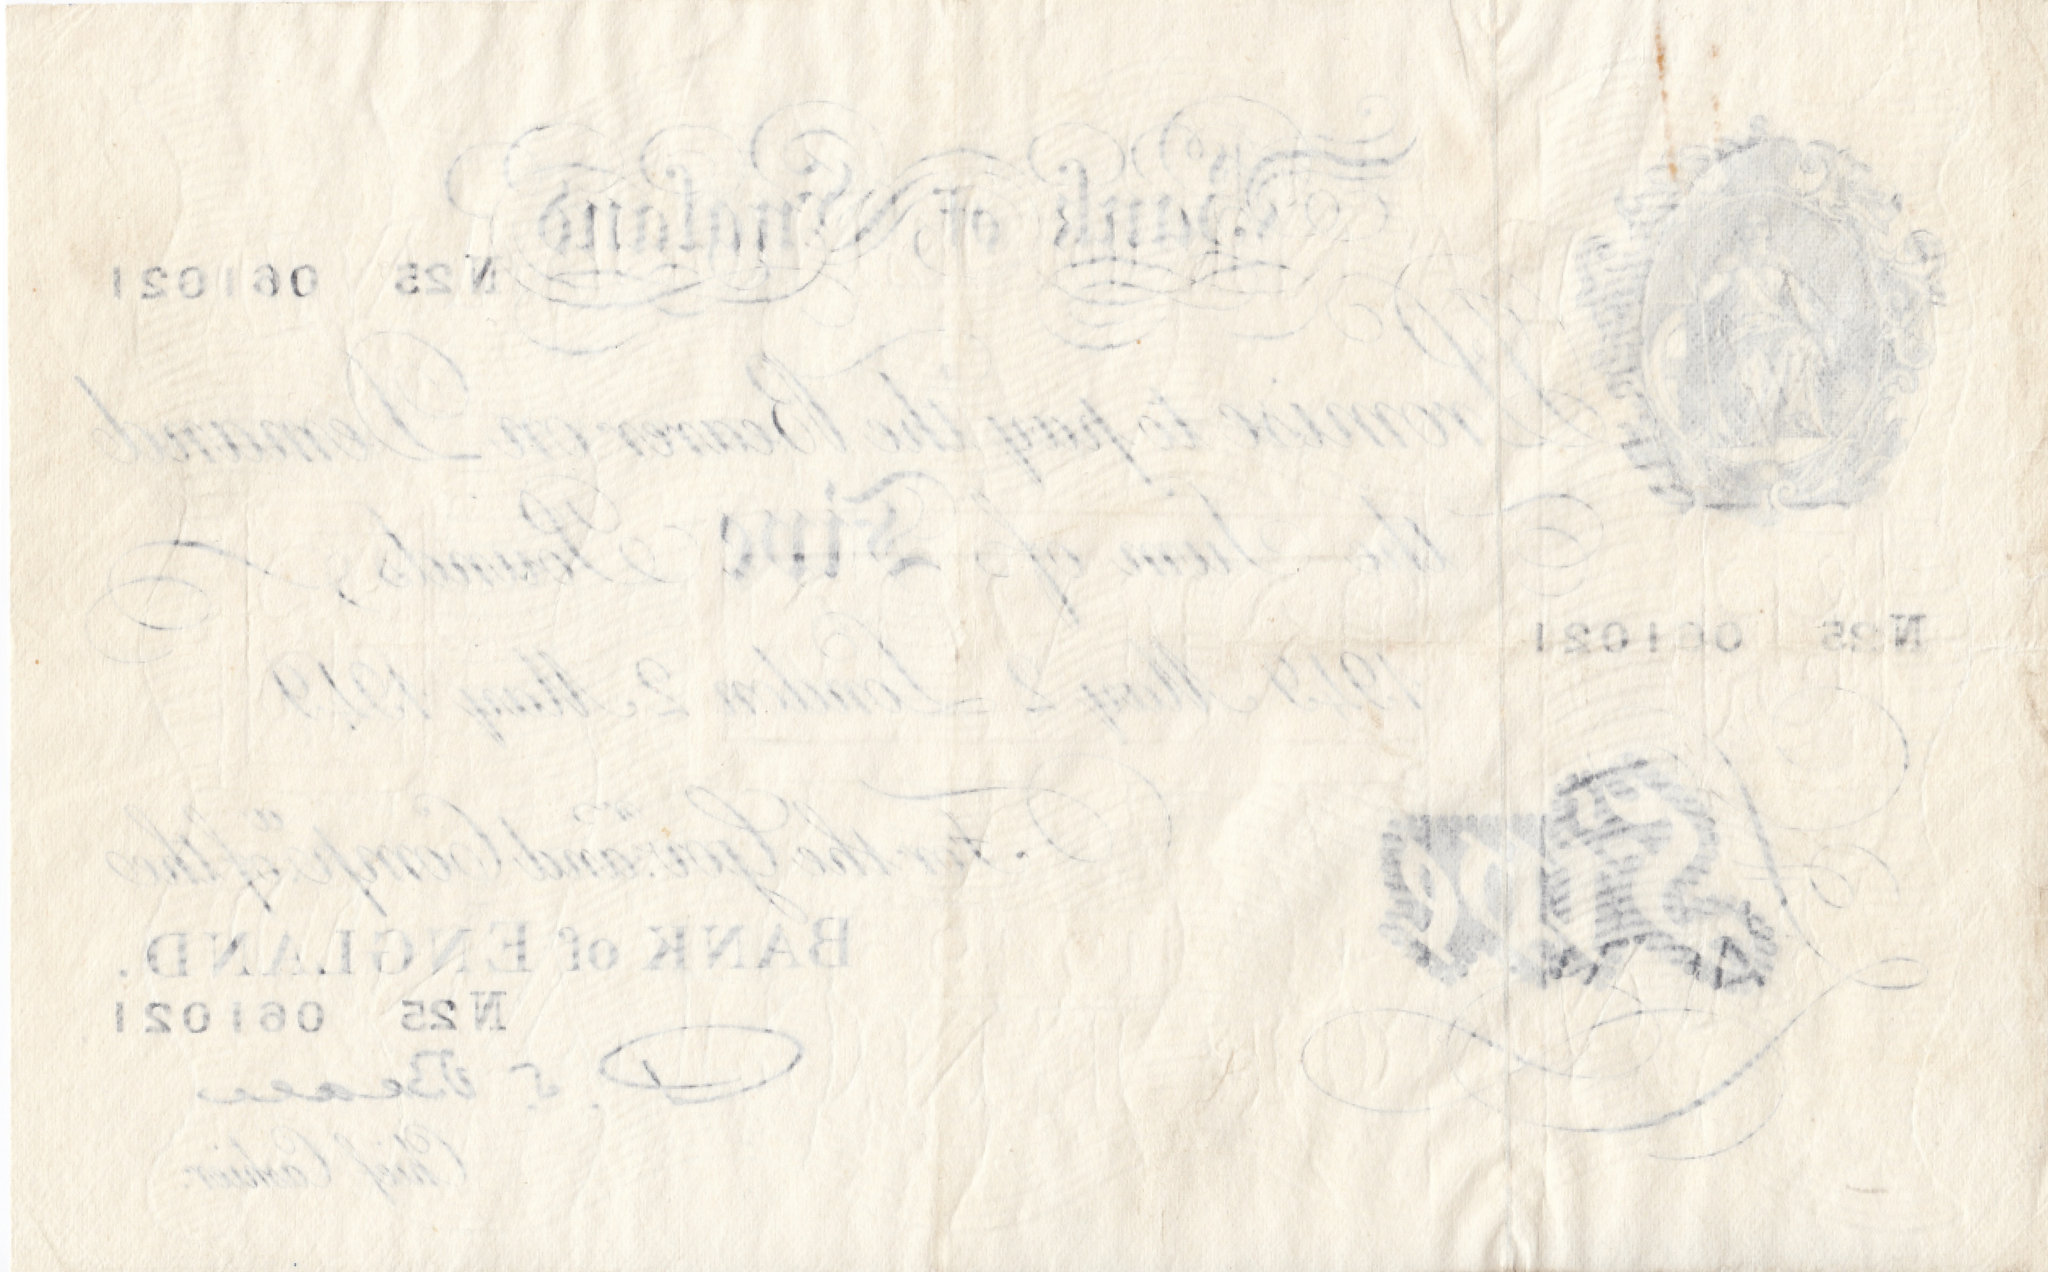 Bank of England
N25 061021
I Promise to pay the Bearer on Demand
the Sum of Five Pounds
N25 061021
1949 May 2 London 2 May 1949
For the Govr. and Compa. of the
BANK of ENGLAND.
Five
N25 061021
P. S. Beale
Chief Cashier.